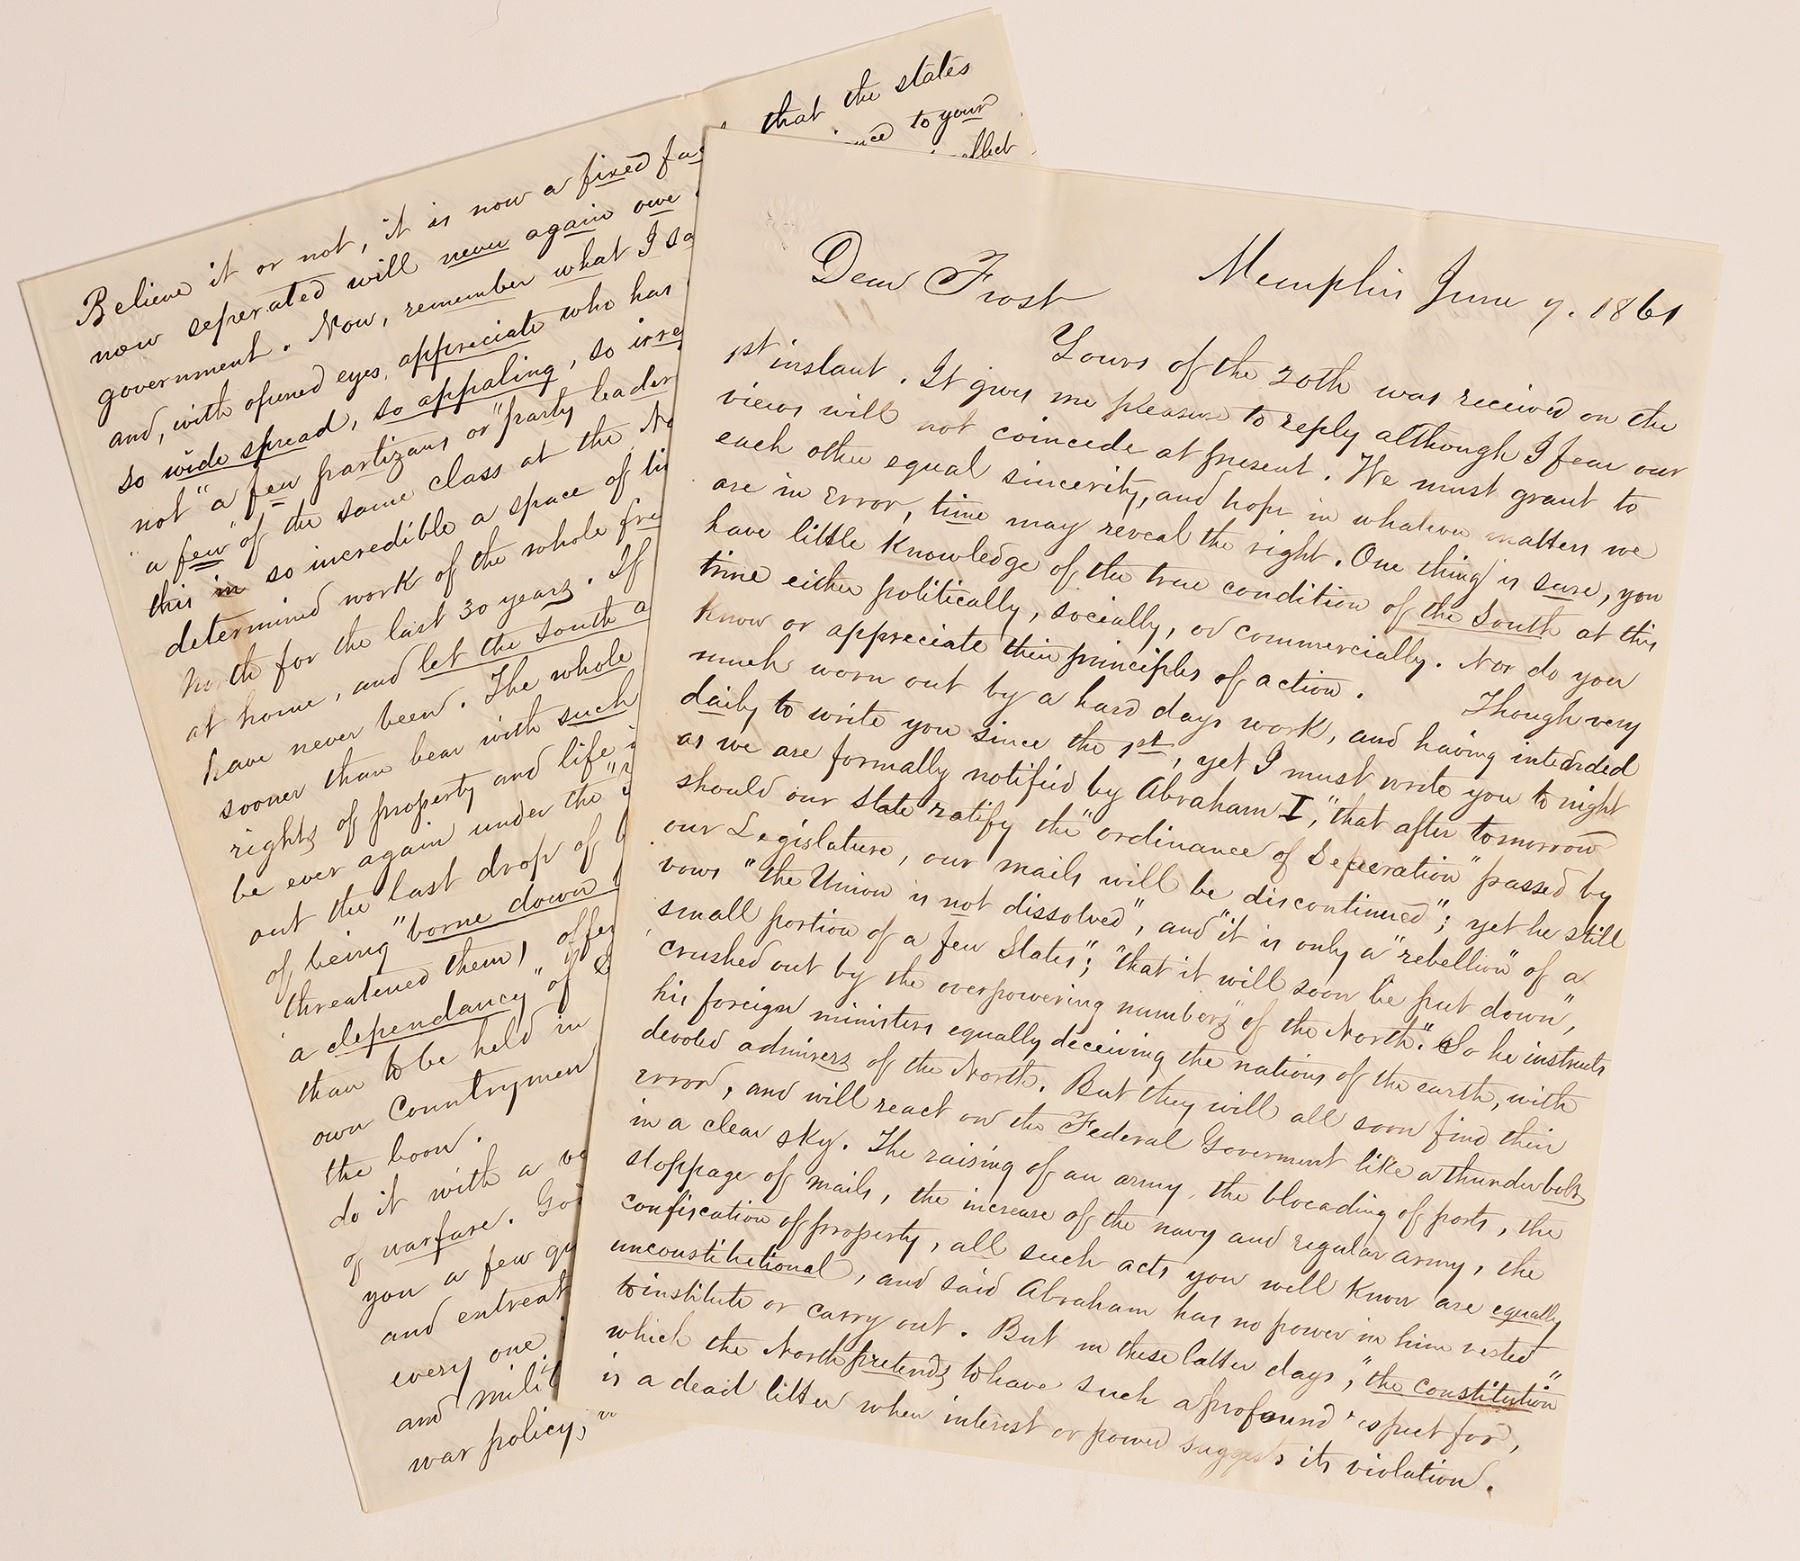 Dear Frost
Memphis June 7. 1861
Yours of the 20th was received on the
1st instant. It gives me pleasure to reply although I fear our
views will not coincede at present. We must grant to
each other equal sincerity, and hope in whatever matters we
are in error, time may reveal the right. One thing is sure, you
have little knowledge of the true condition of the South at this
time either politically, socially, or commercially. Nor do you
know or appreciate their principles of action. Though very
much worn out by a hard days work, and having intended
daily to write you since the 1st, yet I must write you to night
as we are formally notified by Abraham I, "that after tomorrow
should our state ratify the "ordinance of Seperation" passed by
our Legislature, our mails will be discontinued"; yet he still
vows "the Union is not dissolved", and "it is only a "rebellion" of a
small portion of a few States"; "that it will soon be put down",
"crushed out by the overpowering numbers" of the North". So he instructs
his foreign ministers equally deceiving the nations of the earth, with
devoted admirers of the North. But they will all soon find their
error, and will react on the Federal Goverment like a thunderbolt
in a clear sky. The raising of an army, the blocading of ports, the
stoppage of mails, the increase of the navy and regular army, the
confiscation of property, all such acts you well know are equally
unconstitutional, and said Abraham has no power in him vested
to institute or carry out. But in these latter days, "the constitution"
which the North pretends to have such a profound respect for,
is a dead letter when interest or power suggests its violation.
Believe it or not, it is now a fixed that the states
now seperated will never again owe to your
government. Now, remember what I
and, with opened eyes, appreciate who has
so wide spread, so appaling, so
not "a few partizans or "party leaders
"a few" of the same class at the
this in so incredible a space of
determined work of the whole
North for the last 30 years. If
at home, and let the South
have never been. The whole
sooner than bear with such
rights of property and life
be ever again under the
out the last drop of
of being "borne down
threatened them,
a dependancy" of
than to be held in
own countrymen
the boon.
do it with a
of warfare.
you a few
and entreat
every one
and
war policy,